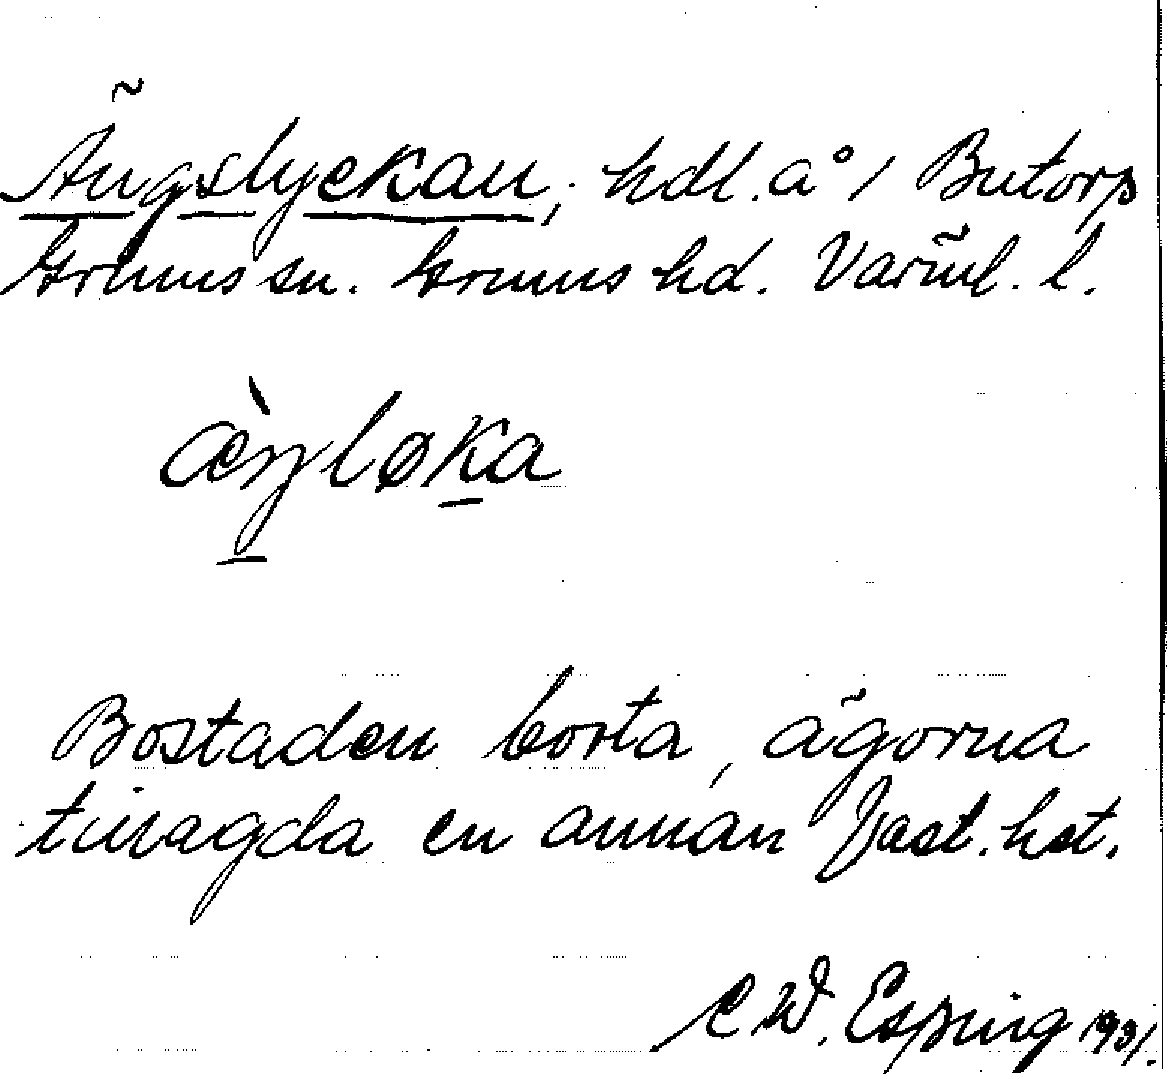 Ängslyckan, hdl. å 1 Butorp
Grums sn. Grums hd. Värml. l.
æ̀ŋløka
Bostaden borta, ägorna
tillagda en annan fast. het.
C W. Esping 1931.